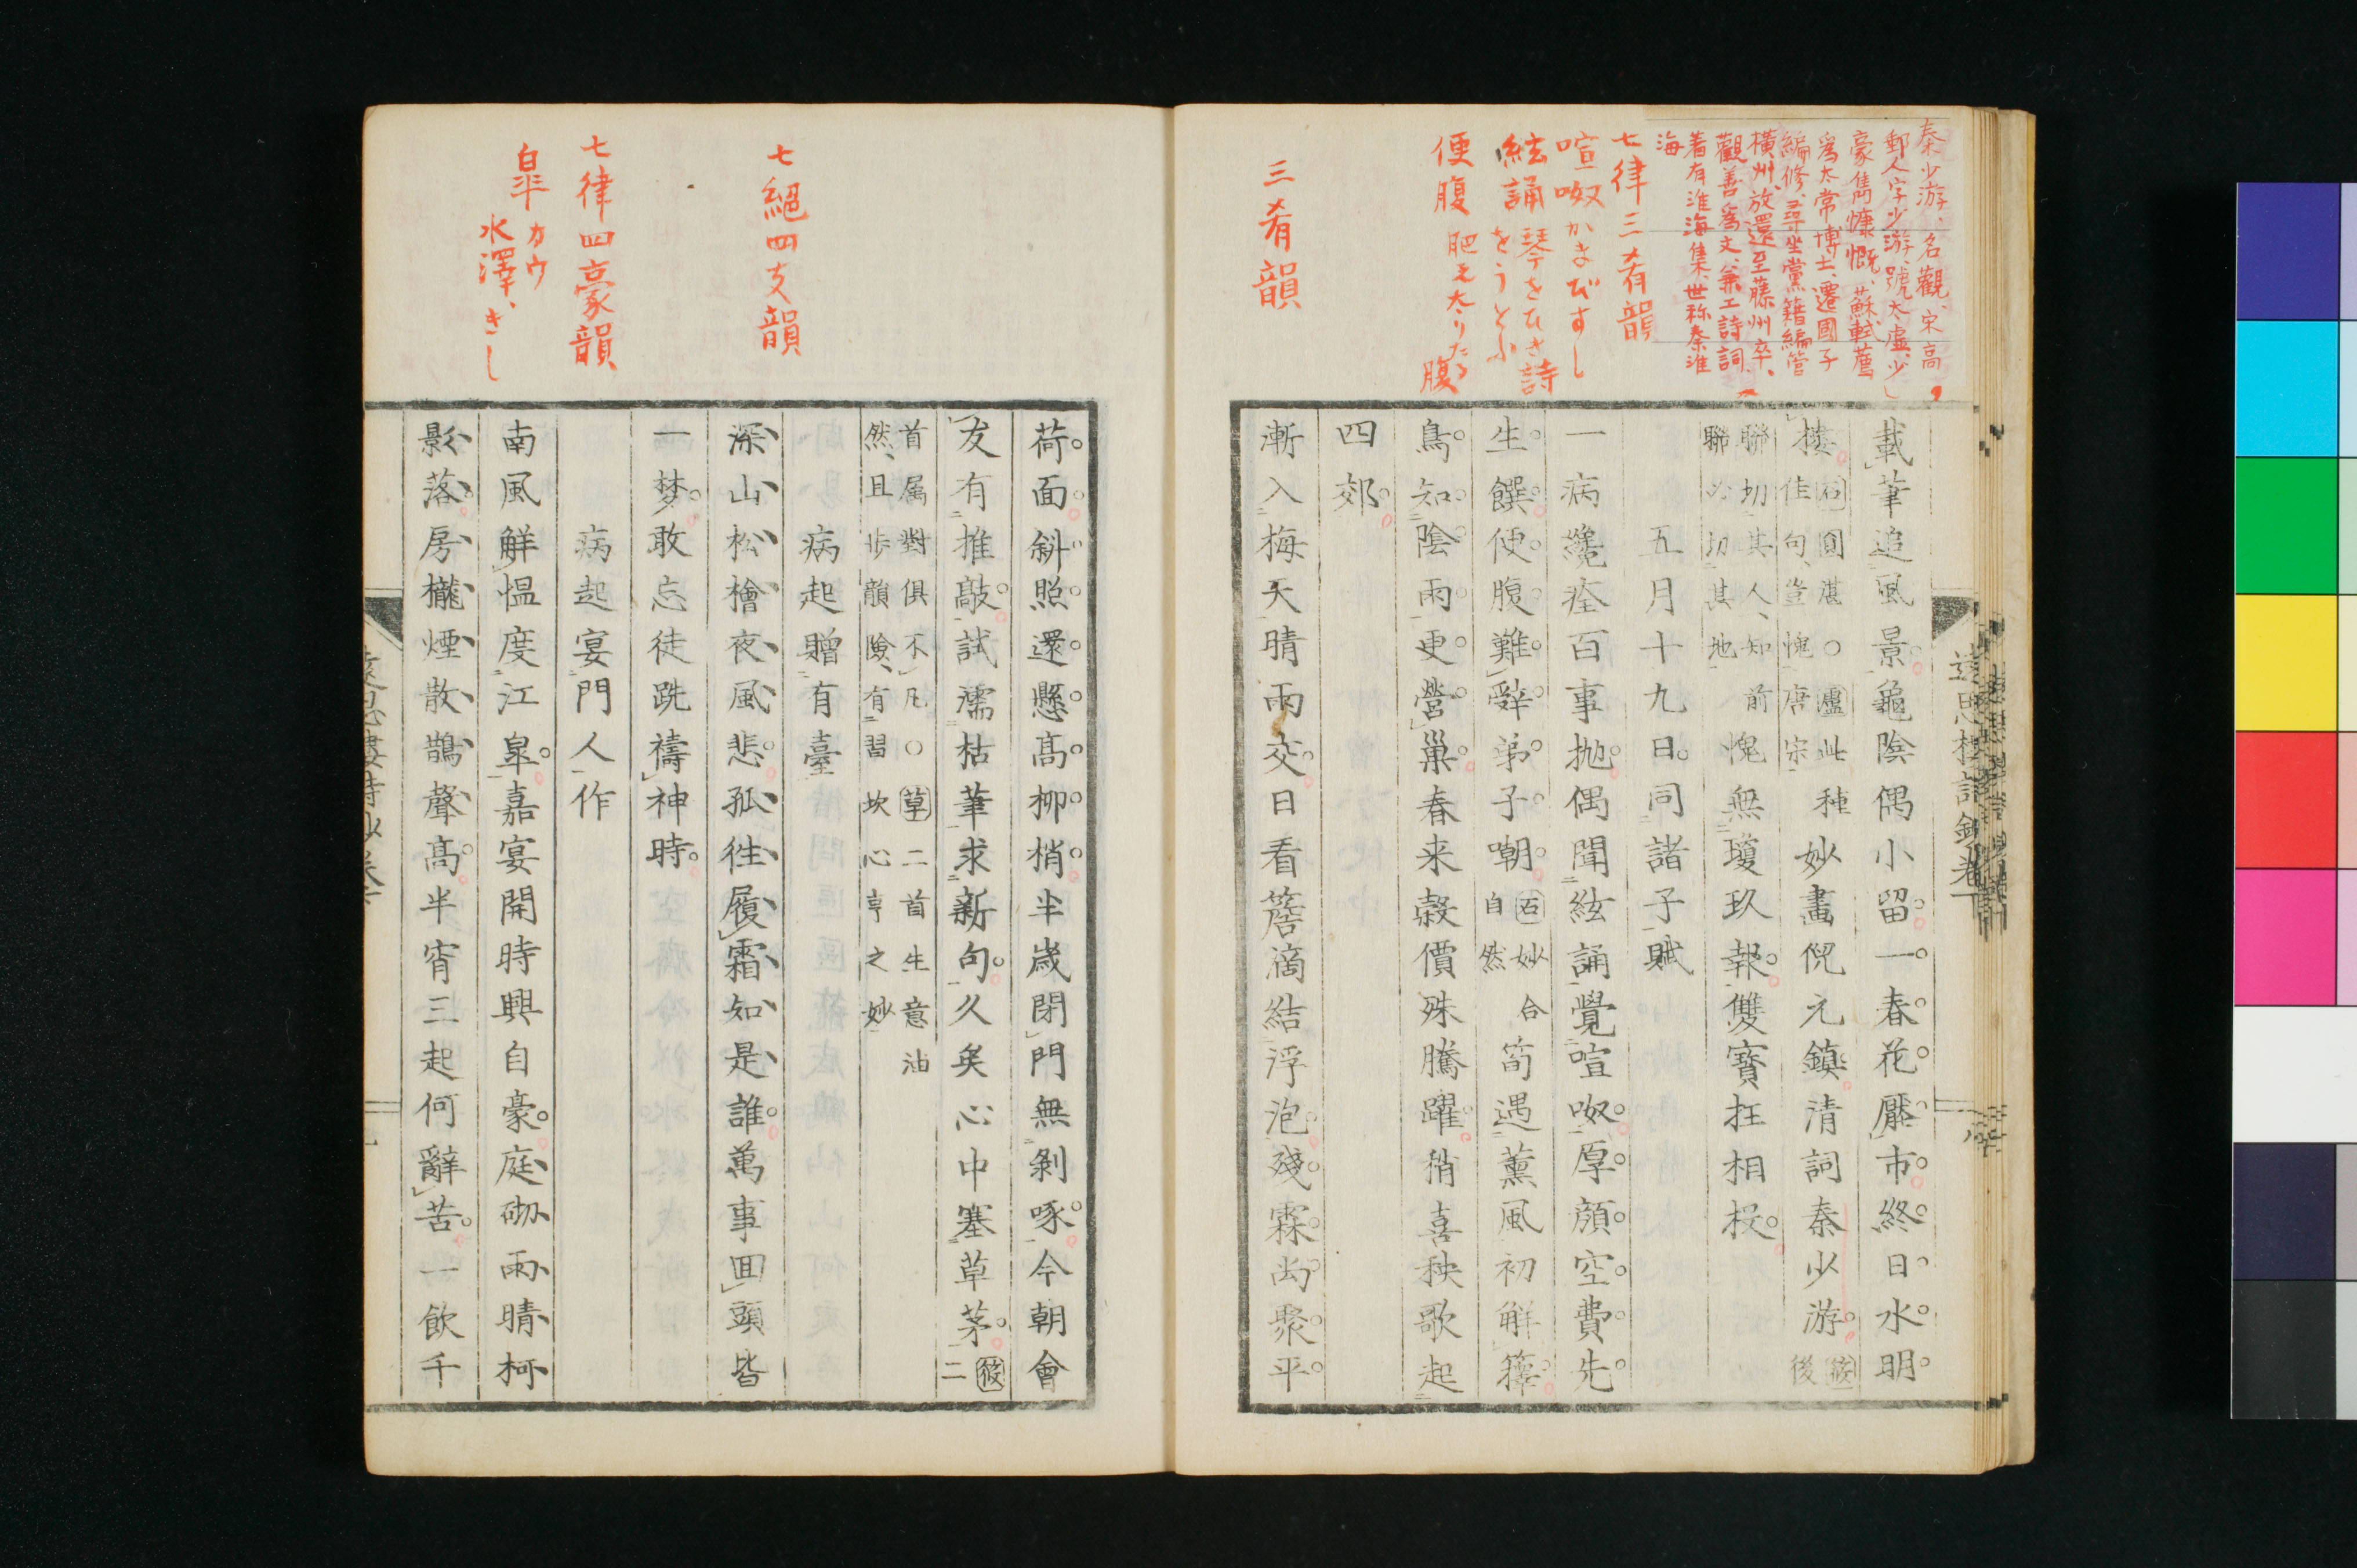 秦少游、名觀、宋高
郵人字少游、號太虛、少
豪雋慷慨、蘇軾薦
爲太常博士、遷國子
編修、尋坐黨籍編管
橫州、放還至藤州卒、
觀善爲文、兼工詩詞、
着有淮海集、世称秦淮
海
七律三肴韻
喧呶かまびすし
絃誦琴をひき詩
をうとふ
便腹肥え太りたる腹
三肴韻
載筆追風景龜陰偶小留一春花壓市終日水明
樓㊨圓湛○盧此種
佳句、豈愧唐宋
妙畫倪元鎮清詞秦少游筱後
聯切其人、知前
聯必切其地
愧無瓊玖報雙寶抂相投
五月十九日同諸子賦
一病纔痊百事抛偶聞絃誦覺喧呶厚顔空費先
生饌便腹難辭弟子嘲石妙合
自然
筍遇薫風初解籜
鳥知陰雨更營巢春来穀價殊騰躍稍喜秧歌起
四郊
漸入梅天晴雨交日看簷滴結浮泡殘霖尚聚平
七絕四支韻
七律四豪韻
皐カウ
水澤、きし
荷面斜照還懸高柳梢半歲閉門無剝啄今朝會
友有推敲試濡枯筆求新句久矣心中塞草茅筱二
首属對俱不凡○草二首生意油
然、且步韻險、有習坎心亨之妙
病起贈有臺
深山松檜夜風悲孤往履霜知是誰萬事回頭皆
一梦敢忘徒跣禱神時
病起宴門人作
南風解愠度江皐嘉宴開時興自豪庭砌雨晴柯
影落房櫳煙散鵲聲高半宵三起何辭苦一飲千